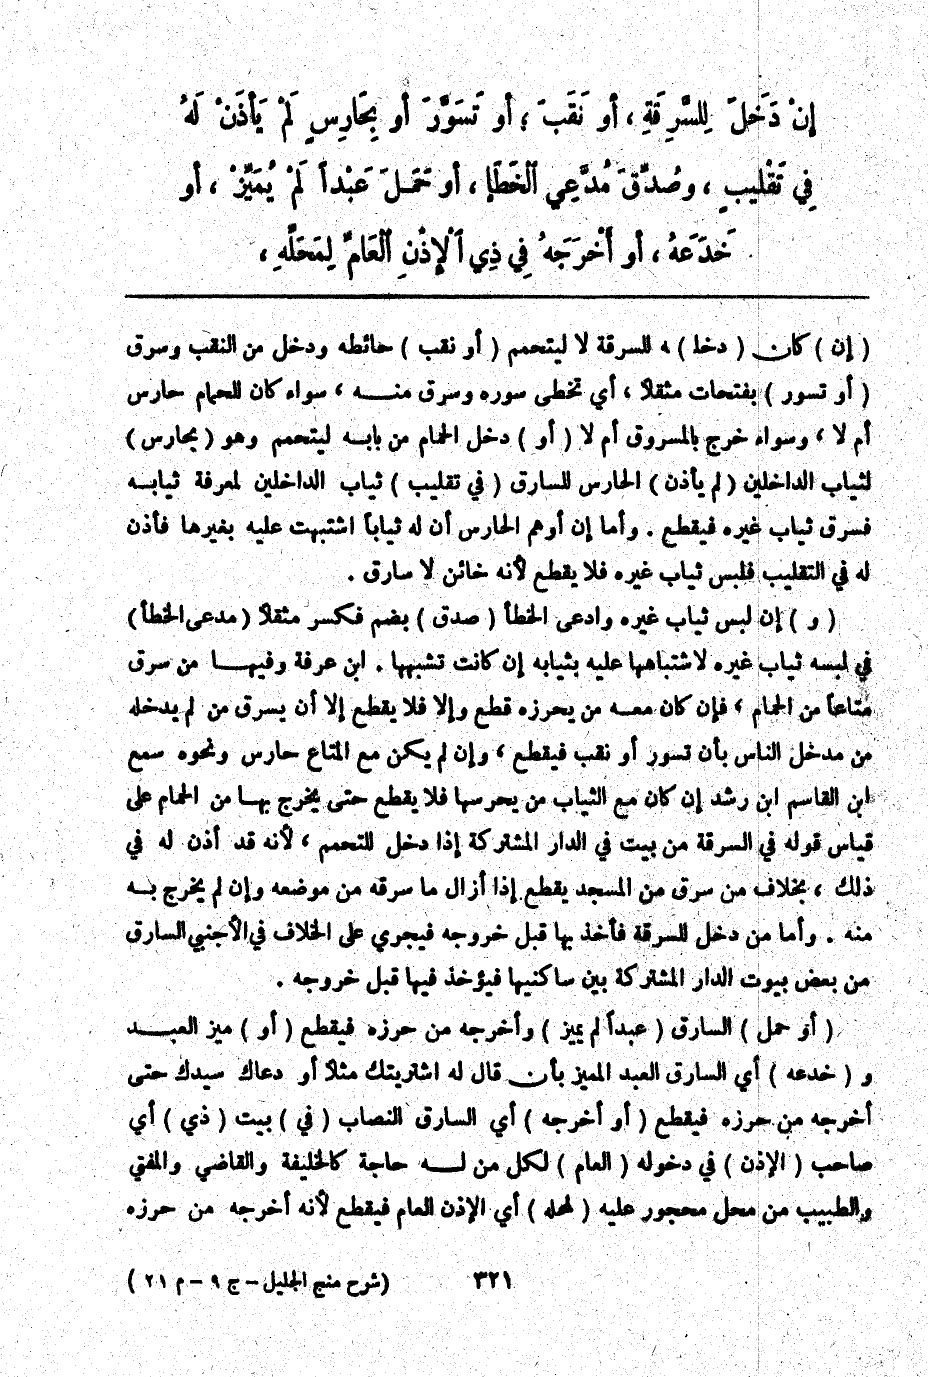 إِنْ دَخَلَ لِلسَّرِقَةِ ، أو نَقَبَ ، أو تَسَوَّرَ أو بِحَارِسٍ لَمْ يَأْذَنْ لَهُ
فِي تَقْلِيبٍ ، وصُدِّقَ مُدَّعِي ٱلْخَطَإِ ، أو حَمَلَ عَبْداً لَمْ يُمَيِّزْ ، أو
خَدَعَهُ ، أو أَخْرَجَهُ فِي ذِي ٱلْإِذْنِ ٱلْعَامِّ لِمَحَلِّهِ ،
( إن ) كان ( دخل ) ـه للسرقة لا ليتحمم ( أو نقب ) حائطه ودخل من النقب وسرق
( أو تسور ) بفتحات مثقلاً ، أي تخطى سوره وسرق منه ، سواء كان للحمام حارس
أم لا ، وسواء خرج بالمسروق أم لا ( أو ) دخل الحمام من بابه ليتحمم وهو ( بحارس )
لثياب الداخلين ( لم يأذن ) الحارس للسارق ( في تقليب ) ثياب الداخلين لمعرفة ثيابه
فسرق ثياب غيره فيقطع . وأما إن أوهم الحارس أن له ثياباً اشتبهت عليه بغيرها فأذن
له في التقليب فلبس ثياب غيره فلا يقطع لأنه خائن لا سارق .
( و ) إن لبس ثياب غيره وادعى الخطأ ( صدق ) بضم فكسر مثقلاً ( مدعى الخطأ )
في لبسه ثياب غيره لاشتباهها عليه بثيابه إن كانت تشبهها . ابن عرفة وفيها من سرق
متاعاً من الحمام ، فإن كان معه من يحرزه قطع وإلا فلا يقطع إلا أن يسرق من لم يدخله
من مدخل الناس بأن تسور أو نقب فيقطع ، وإن لم يكن مع المتاع حارس ونحوه سمع
ابن القاسم ابن رشد إن كان مع الثياب من يحرسها فلا يقطع حتى يخرج بها من الحمام على
قياس قوله في السرقة من بيت في الدار المشتركة إذا دخل للتحمم ، لأنه قد أذن له في
ذلك ، بخلاف من سرق من المسجد يقطع إذا أزال ما سرقه من موضعه وإن لم يخرج به
منه . وأما من دخل للسرقة فأخذ بها قبل خروجه فيجري على الخلاف في الأجنبي السارق
من بعض بيوت الدار المشتركة بين ساكنيها فيؤخذ فيها قبل خروجه .
( أو حمل ) السارق ( عبداً لم يميز ) وأخرجه من حرزه فيقطع ( أو ) ميز العبد
و ( خدعه ) أي السارق العبد المميز بأن قال له اشتريتك مثلاً أو دعاك سيدك حتى
أخرجه من حرزه فيقطع ( أو أخرجه ) أي السارق النصاب ( في ) بيت ( ذي ) أي
صاحب ( الإذن ) في دخوله ( العام ) لكل من له حاجة كالخليفة والقاضي والمفتي
والطبيب من محل محجور عليه ( لمحله ) أي الإذن العام فيقطع لأنه أخرجه من حرزه
٣٢١ (شرح منح الجليل - ج ٩ - م ٢١ )